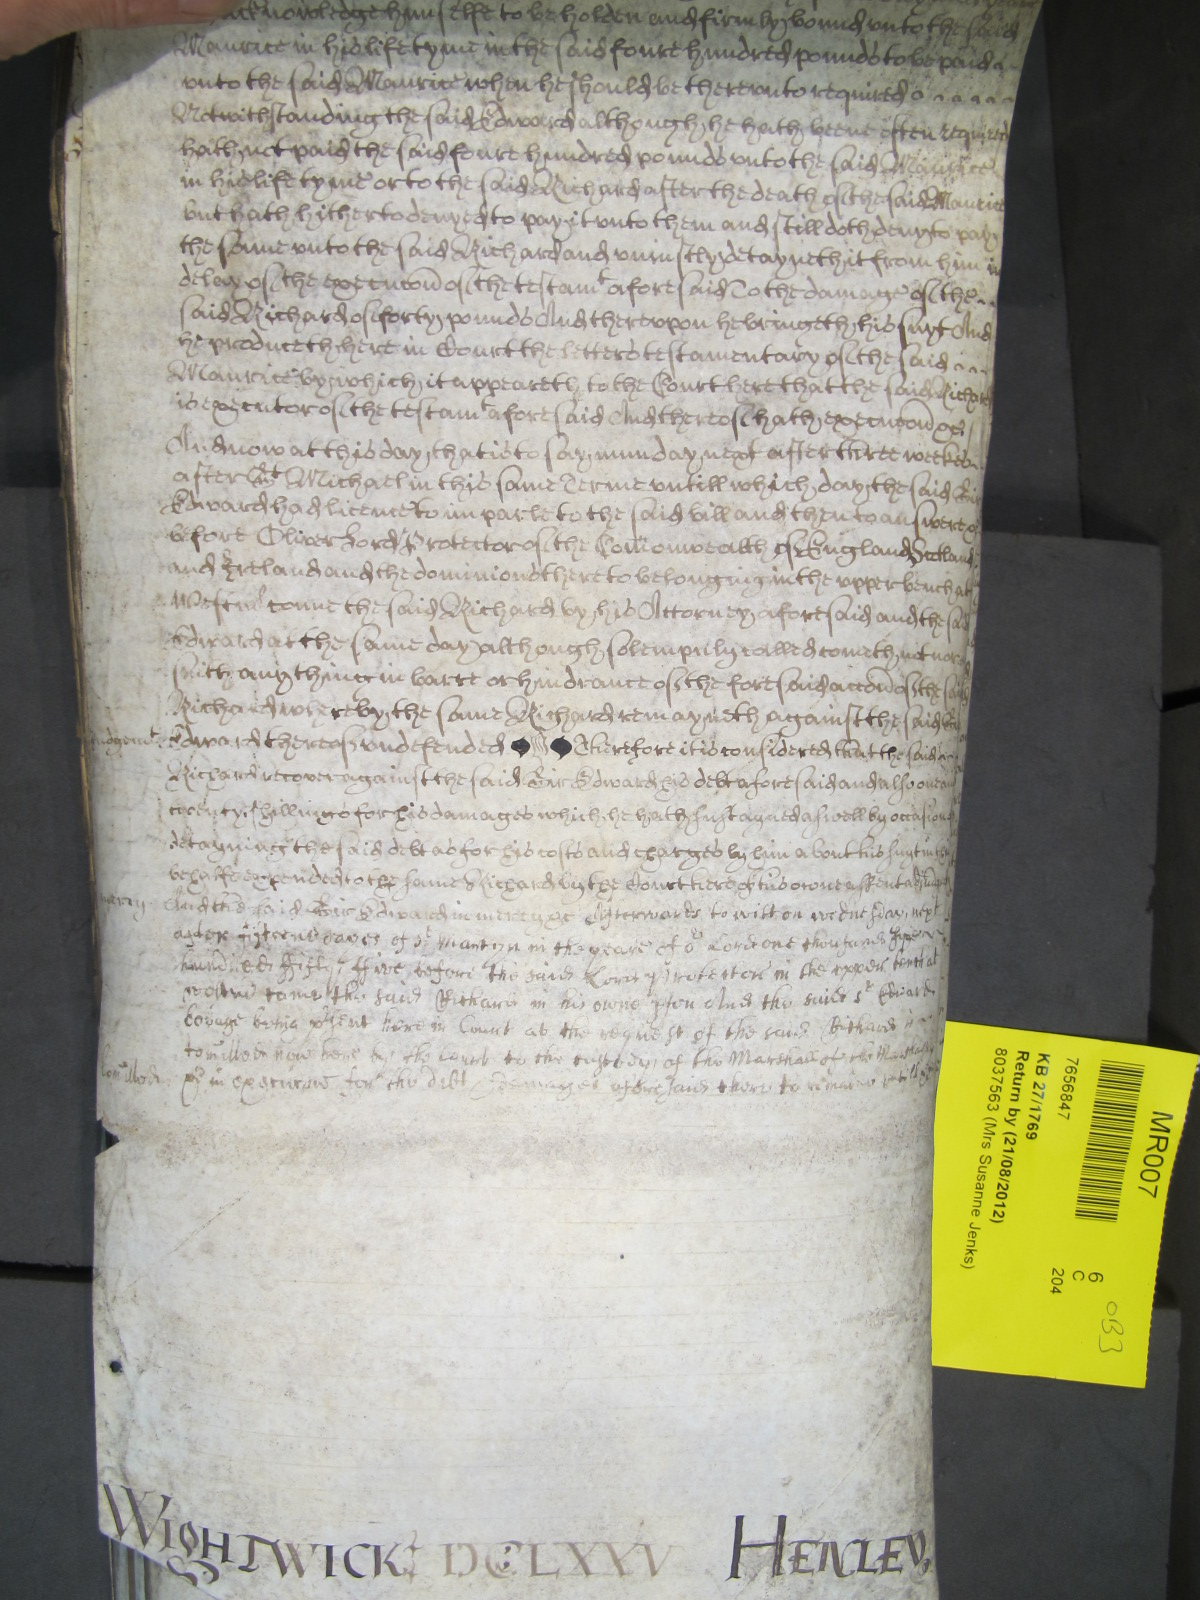 acknowledge himselfe to be holden and firmly bound unto the said
Maurice in his life tyme in the said foure hundred pounds to be paid
unto the said Maurice when he should be thereunto required
Notwithstanding the said Edward although he hath beene often required
hath not paid the said foure hundred pounds unto the said Maurice
in his life tyme or to the said Richard after the death of the said Maurice
but hath hitherto denyed to pay it unto them and still doth deny to pay
the same unto the said Richard and uniustly detayneth it from him in
delay of the execucon of the testamt aforesaid To the damage of the
said Richard of forty pounds And thereupon he bringeth his suyt And
he produceth here in Court the letters testamentary of the said
Maurice by which it appeareth to the Court here that the said Richard
is executor of the testamt aforesaid And thereof hath execucon &c
And now at this day that is to say munday next after three weekes
after St Michael in this same Terme untill which day the said Sir
Edward had licence to imparle to the said bill and then to answere &c
before Oliver Lord Protector of the Comonwealth of England Scotland
and Ireland and the dominions thereto belonging in the upper bench at
Westmr come the said Richard by his Attorney aforesaid and the said
Edward at the same day although solempnly called cometh not nor
saith any thing in barre or hindrance of the foresaid accon of the said
Richard whereby the same Richard remayneth against the said Sir
Judgemt Edward thereof undefended Therefore it is considered that the said
Richard recover against the said Sir Edward his debt aforesaid and also one and
twenty shillings for his damages which he hath sustayned aswell by occasion of
detayning the said debt as for his costs and charges by him about his suyt in this
behalfe expended to the same Richard by the Court here of his owne assent adiudged
mercy And the said Sir Edward in mercy &c Afterwards to witt on wednesday next
after fifteene dayes of St Martyn in the yeare of or Lord one thousand sixe
hundred fifty & five before the said Lord Protector in the upper bench at
westmr came the said Richard in his owne pson And the said Sr Edward
being psent here in Court at the request of the said Richard is
comitted now here by the Court to the custody of the Marshall of the Marshalsey
Comitted &c in execucon for the debt & damages aforesaid there to remaine untill &c
WIGHTWICK: DCLXXV HENLEY,
MR007
7656847
KB 27/1769
Return by (21/08/2012)
8037563 (Mrs Susanne Jenks)
6
C
204